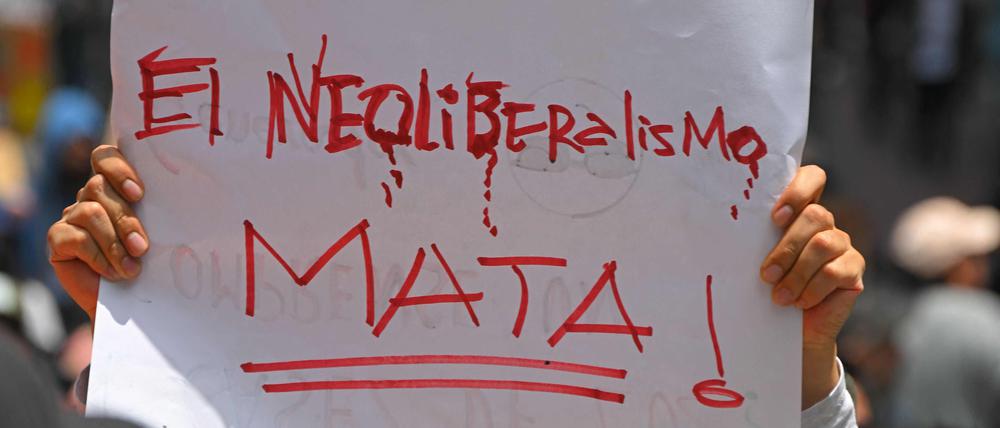 El NEOliBERalisMo
MATA!